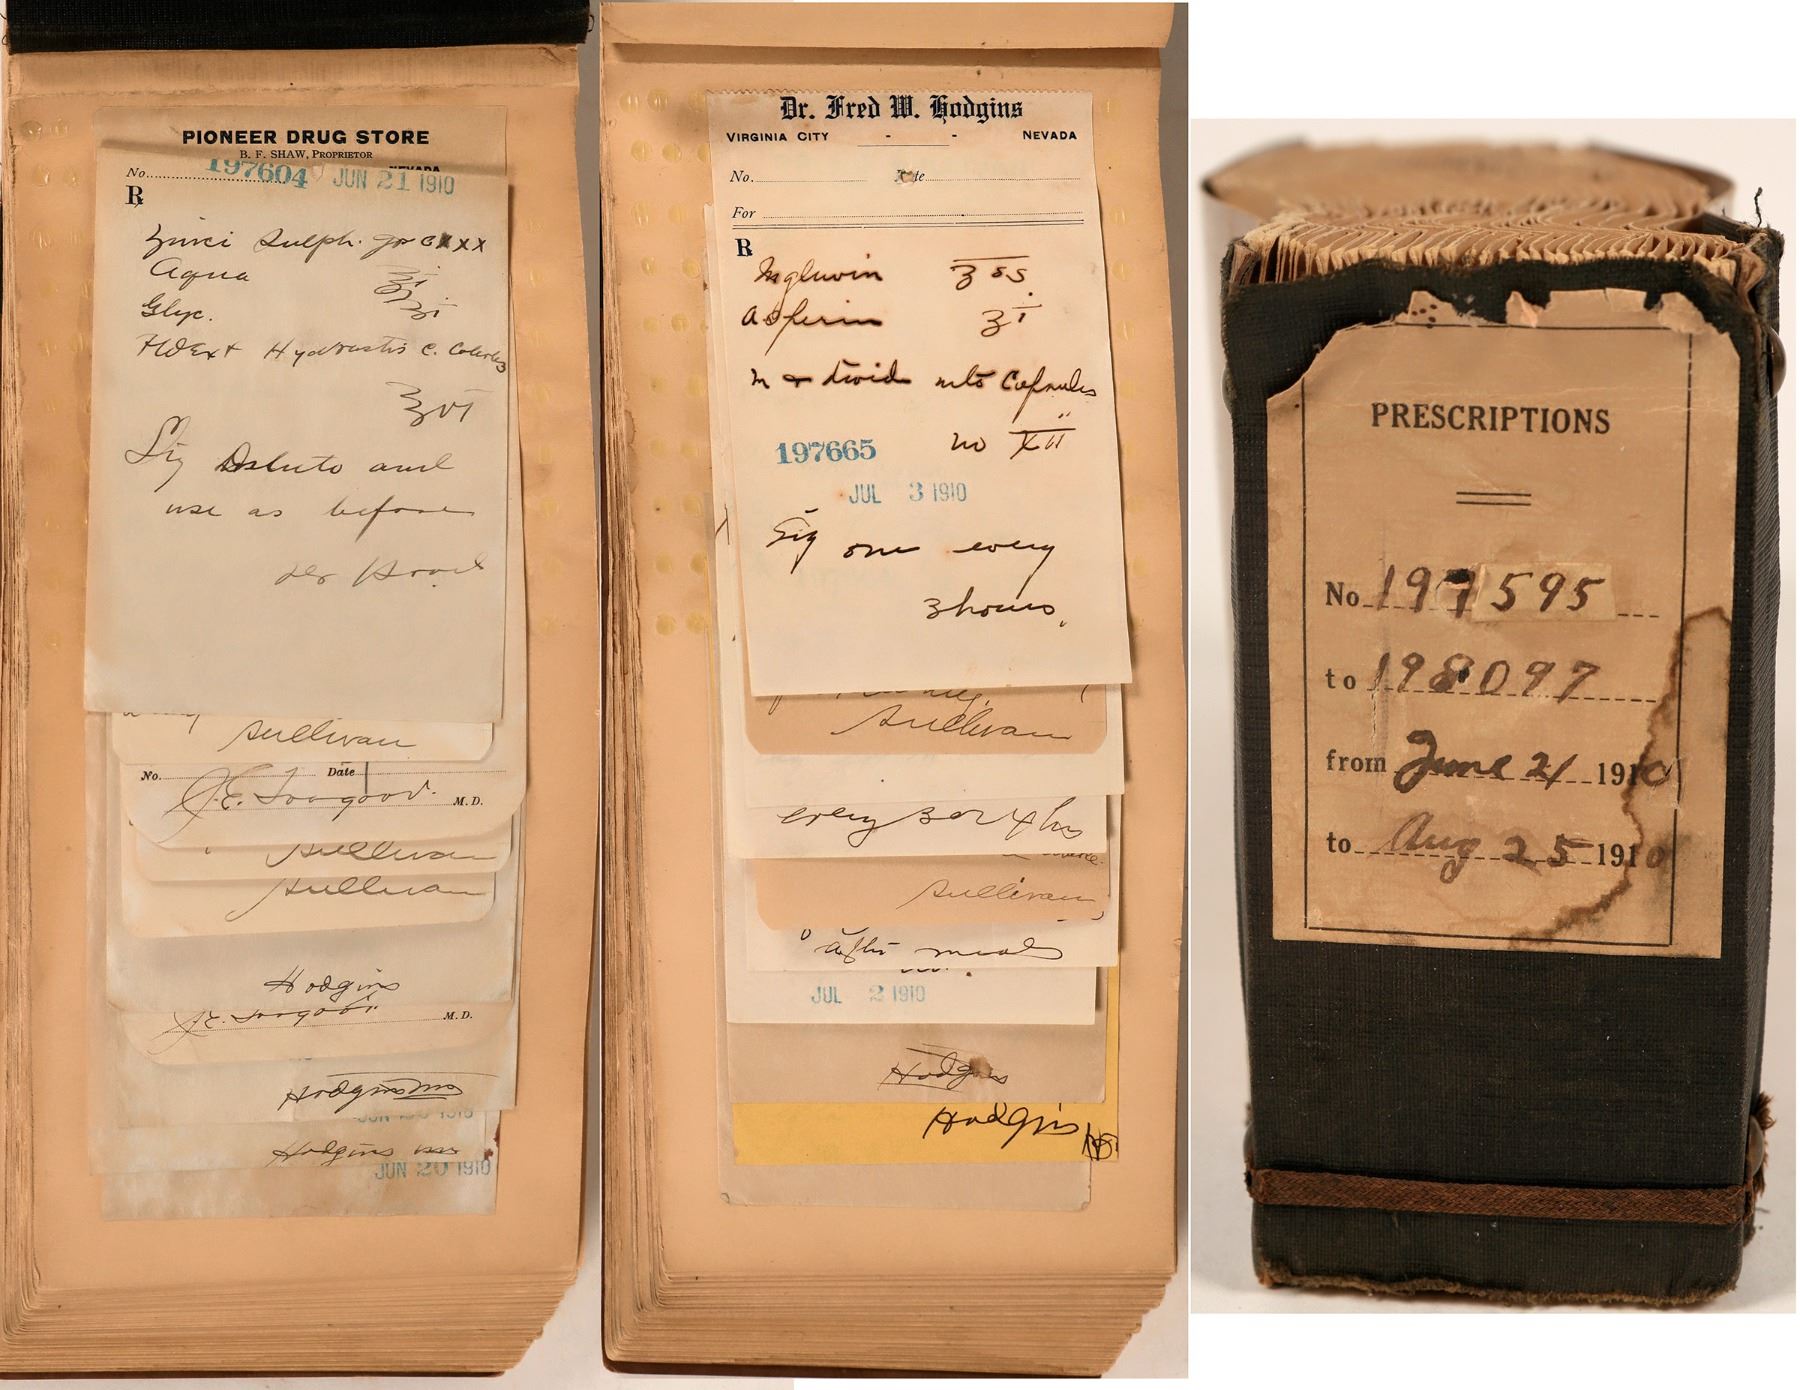 PIONEER DRUG STORE
B. F. SHAW, PROPRIETOR
NEVADA
No. 197604 JUN 21 1910
℞
Zinci Sulph. gr cxxx
Aqua ʒi
Glyc. ʒi
Fld Ext Hydrastis C.
ʒvi
Sig Dilute and
use as before
Sullivan
No. Date
M.D.
Sullivan
Sullivan
Hodgins
M.D.
Hodgins
JUN 20 1910
Hodgins
JUN 20 1910
Dr. Fred W. Hodgins
VIRGINIA CITY - - NEVADA
No. Date
For
℞
Ingluvin ʒss
Asperin ʒi
M & divide into Capsules
197665 no xii
JUL 3 1910
Sig one every
3 hours.
Sullivan
every 3 or 4 hrs
Sullivan
after meals
JUL 2 1910
Hodgins
Hodgins
PRESCRIPTIONS
No 197595
to 198097
from June 21 1910
to Aug 25 1910